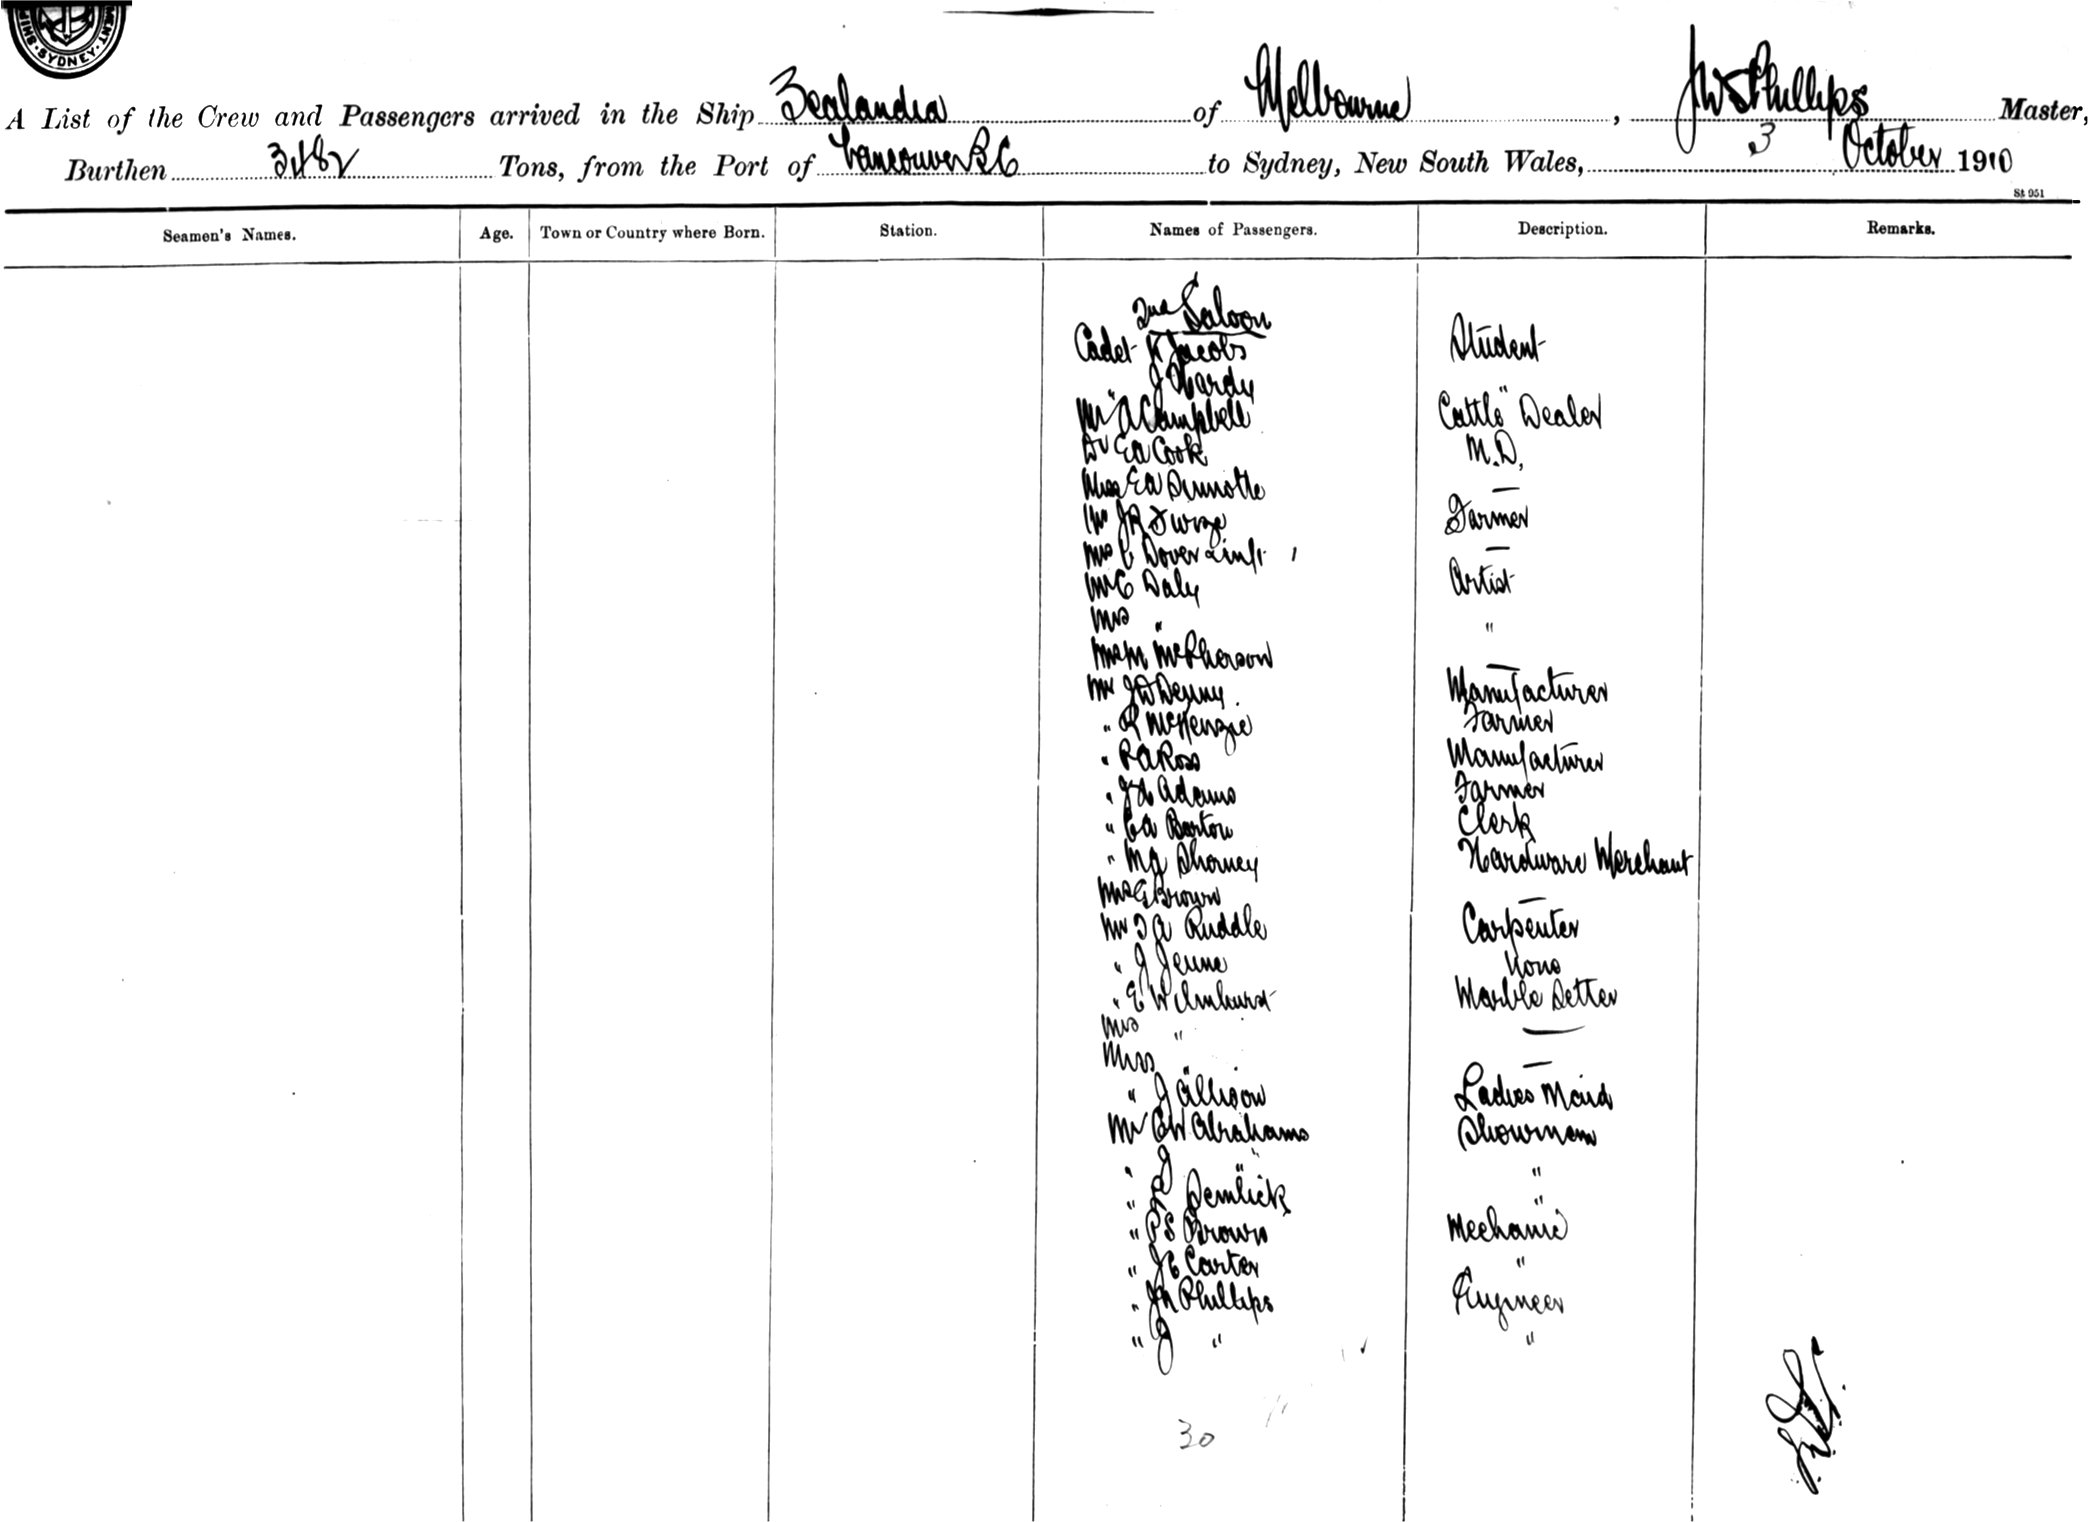 SYDNEY
A List of the Crew and Passengers arrived in the Ship Zealandia of Melbourne, JW Phillips Master,
Burthen 3482 Tons, from the Port of Vancouver B.C to Sydney, New South Wales, 3 October 1910
St 951
Seamen's Names. Age. Town or Country where Born. Station. Names of Passengers. Description. Remarks.
2nd Saloon
Cadet K Jacobs Student
" J Hardy "
Mr A Campbell Cattle Dealer
Dr EA Cook M.D.
Miss EA —
Mr JR Farmer
Mrs C Dover & inft 1 —
Mr C Daly Artist
Mrs " "
Mrs M McPherson —
Mr JD Denny Manufacturer
" McKenzie Farmer
" RA Ross Manufacturer
" Adams Farmer
" CA Barton Clerk
" Shorney Hardware Merchant
Mrs G Brown —
Mr T A Ruddle Carpenter
" J Jenne None
" E Wilmhurst Marble Setter
Mrs " —
Miss " —
" J Allison Ladies Maid
Mr CW Abrahams Showman
" J " "
" Demlick "
" PS Brown Mechanic
" JE Carter "
" JN Phillips Engineer
" J " "
30